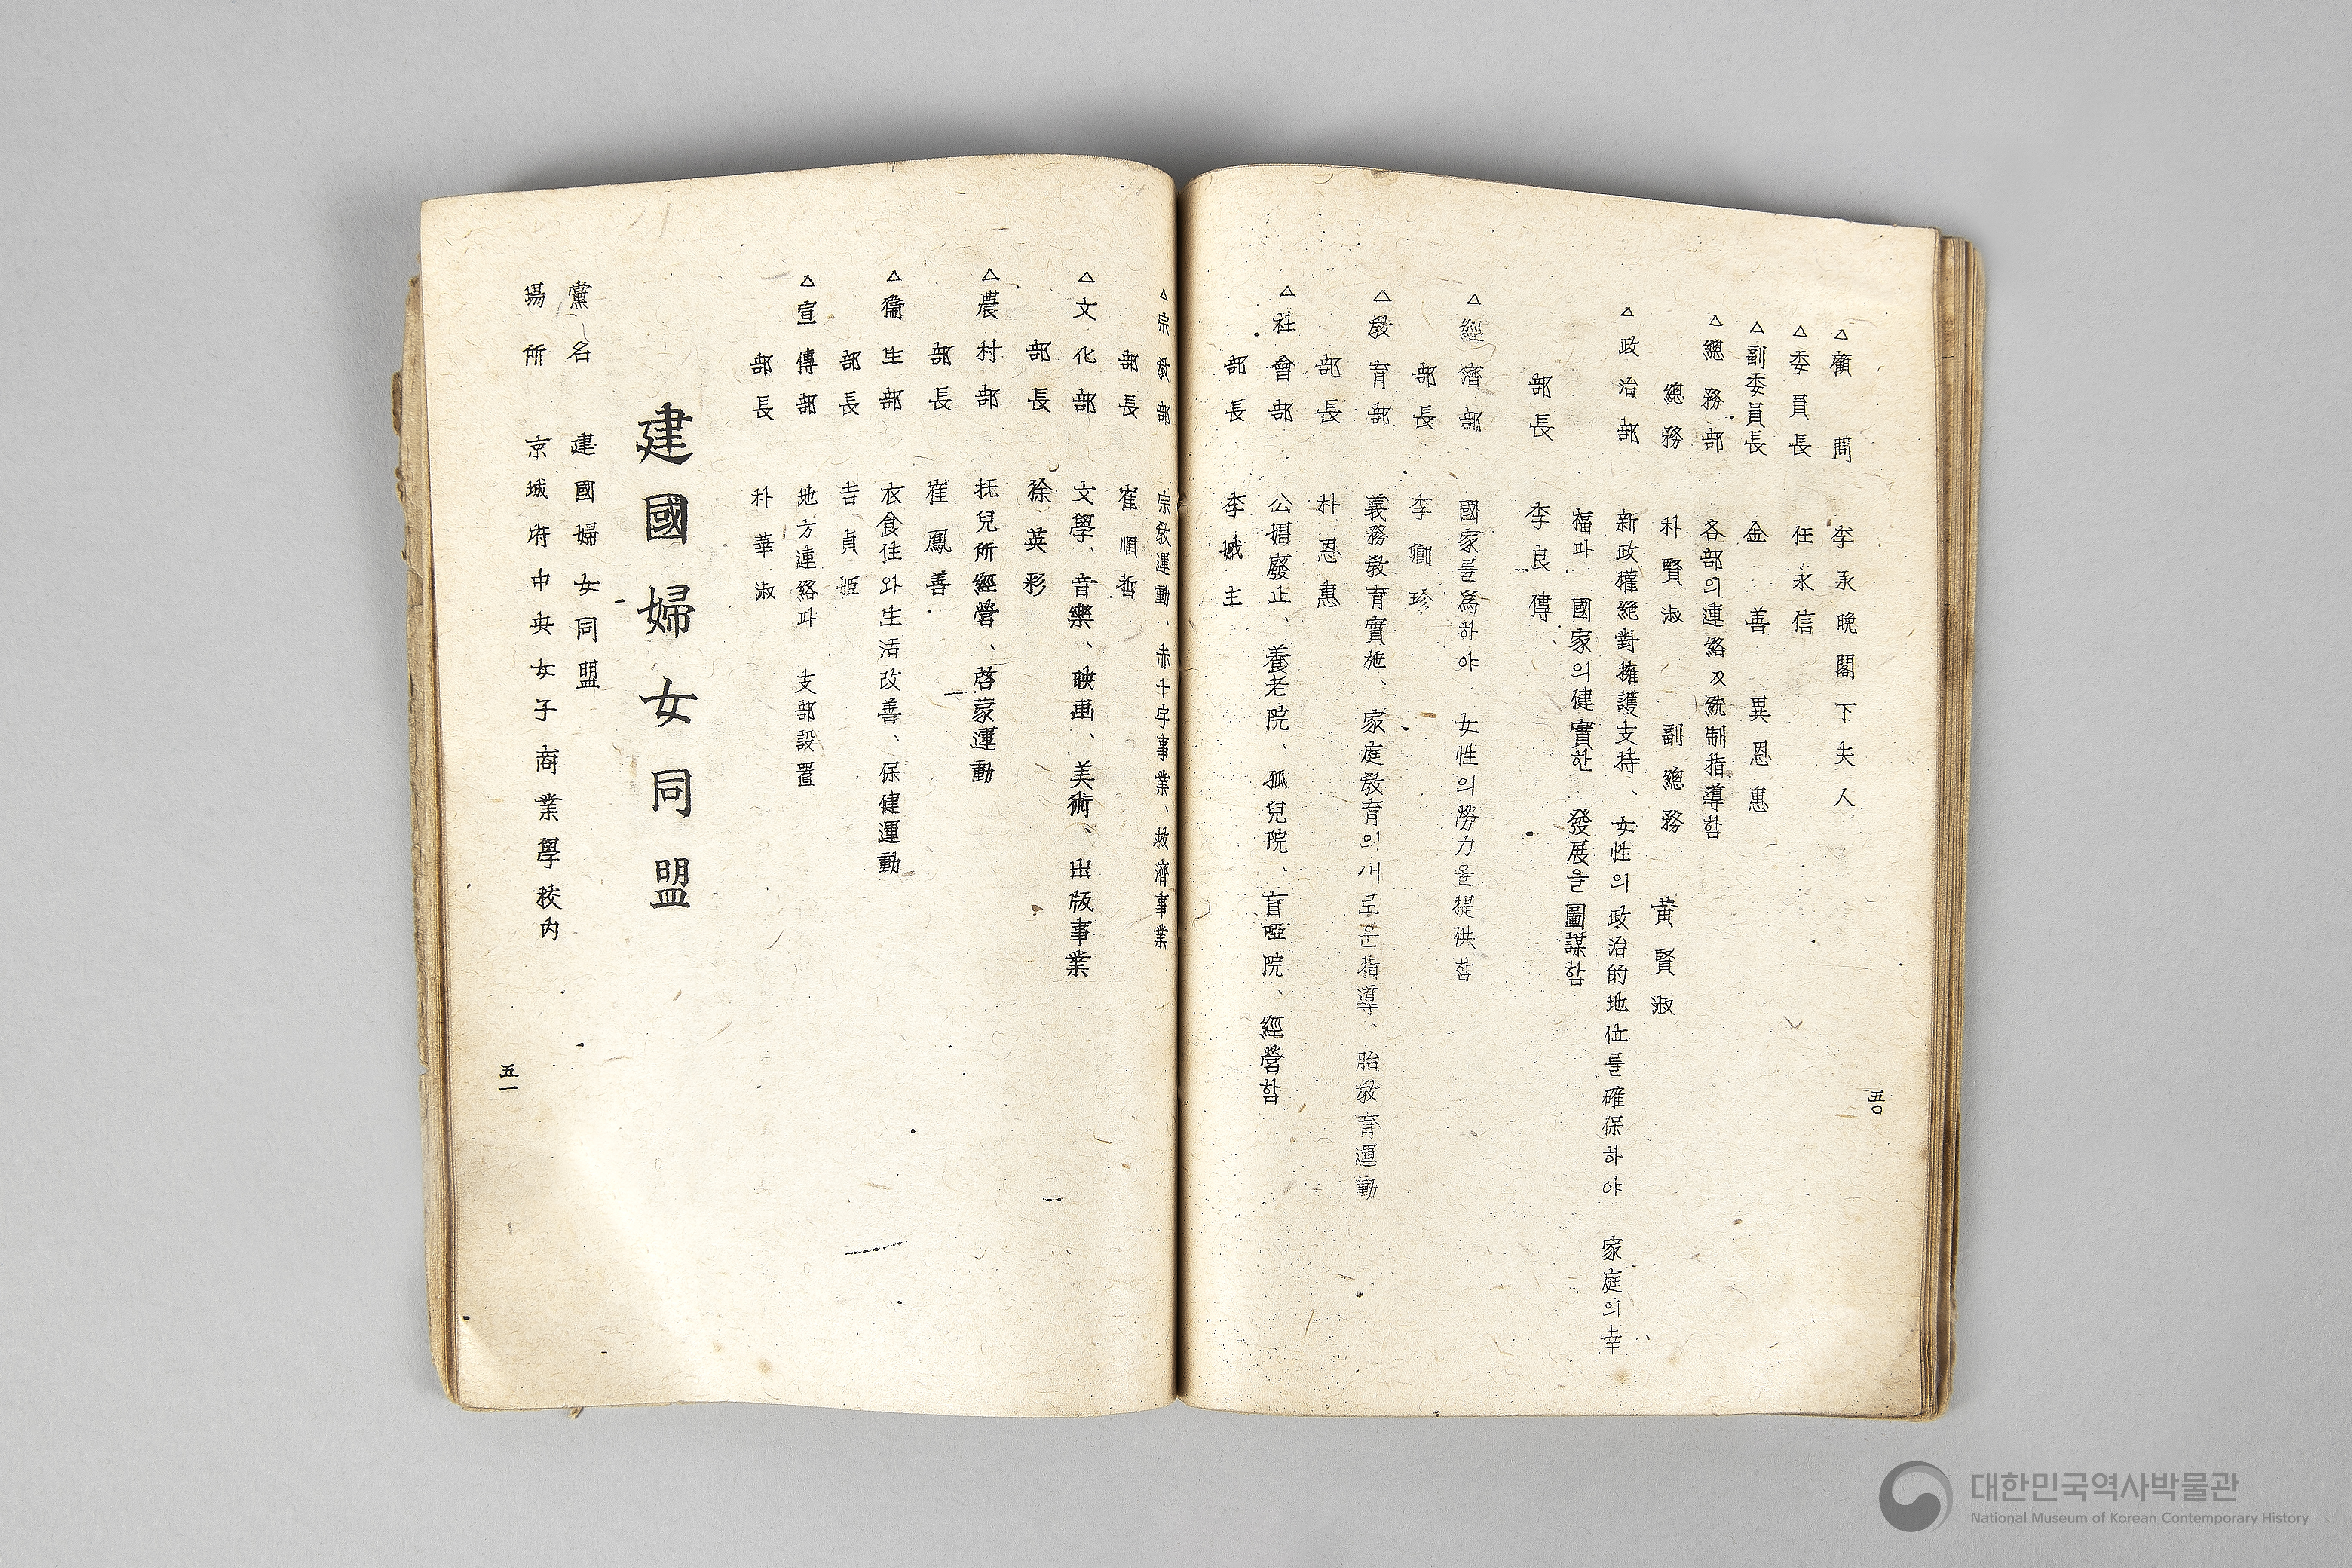 五〇
△顧問 李承晩閣下夫人
△委員長 任永信
△副委員長 金善 異恩惠
△總務部 各部의連絡及統制指導함
總務 朴賢淑 副總務 黃賢淑
△政治部 新政權絶對擁護支持、女性의政治的地位를確保하야 家庭의幸
福과 國家의健實한 發展을圖謀함
部長 李良傳
△經濟部 國家를爲하야 女性의勞力을提供함
部長 李 珍
△敎育部 義務敎育實施、家庭敎育의새로운指導、胎敎育運動
部長 朴恩惠
△社會部 公娼廢止、養老院、孤兒院、盲啞院、經營함
部長 李娥主
△宗敎部 宗敎運動、赤十字事業、救濟事業
部長 崔順哲
△文化部 文學、音樂、映画、美術、出版事業
部長 徐英彩
△農村部 托兒所經營、啓蒙運動
部長 崔鳳善
△衛生部 衣食住와生活改善、保健運動
部長 吉貞姬
△宣傳部 地方連絡과 支部設置
部長 朴華淑
建國婦女同盟
黨名 建國婦女同盟
場所 京城府中央女子商業學校内
五一
대한민국역사박물관
National Museum of Korean Contemporary History